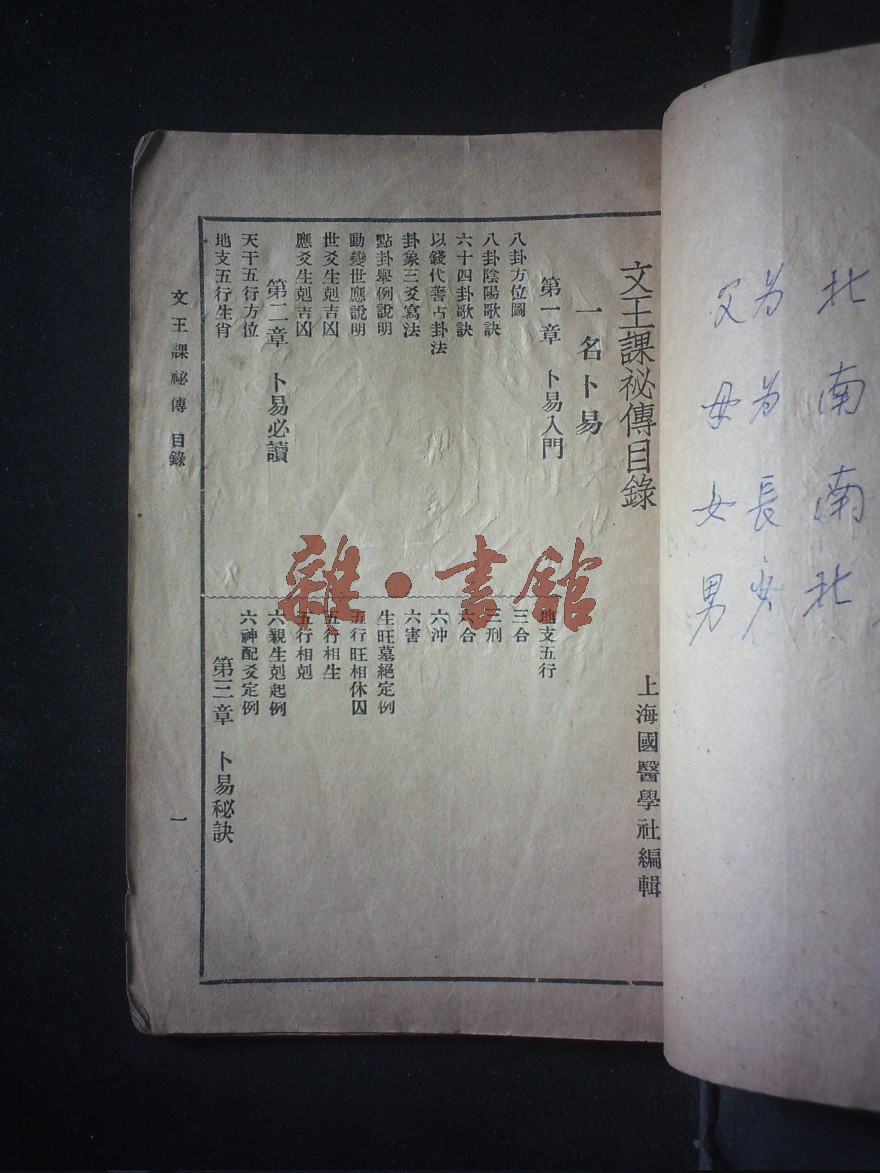 文王課祕傳目錄
上海國醫學社編輯
一名卜易
第一章 卜易入門
八卦方位圖
八卦陰陽歌訣
六十四卦歌訣
以錢代蓍占卦法
卦象三爻寫法
點卦舉例說明
動變世應說明
世爻生剋吉凶
應爻生剋吉凶
第二章 卜易必讀
天干五行方位
地支五行生肖
地支五行
三合
三刑
六合
六沖
六害
生旺墓絕定例
五行旺相休囚
五行相生
五行相剋
六親生剋起例
六神配爻定例
第三章 卜易秘訣
文王課祕傳 目錄
一
雜·書館
北 南 南 北
為 為 長
父 母 女 男